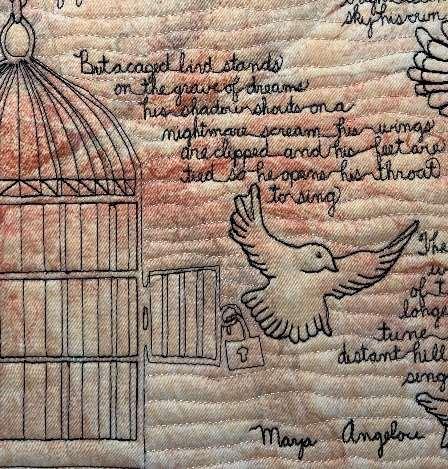 sky his own
But a caged bird stands
on the grave of dreams
his shadow shouts on a
nightmare scream his wings
are clipped and his feet are
tied so he opens his throat
to sing
The
of t
longe
tune
distant hill
sing
Maya Angelou